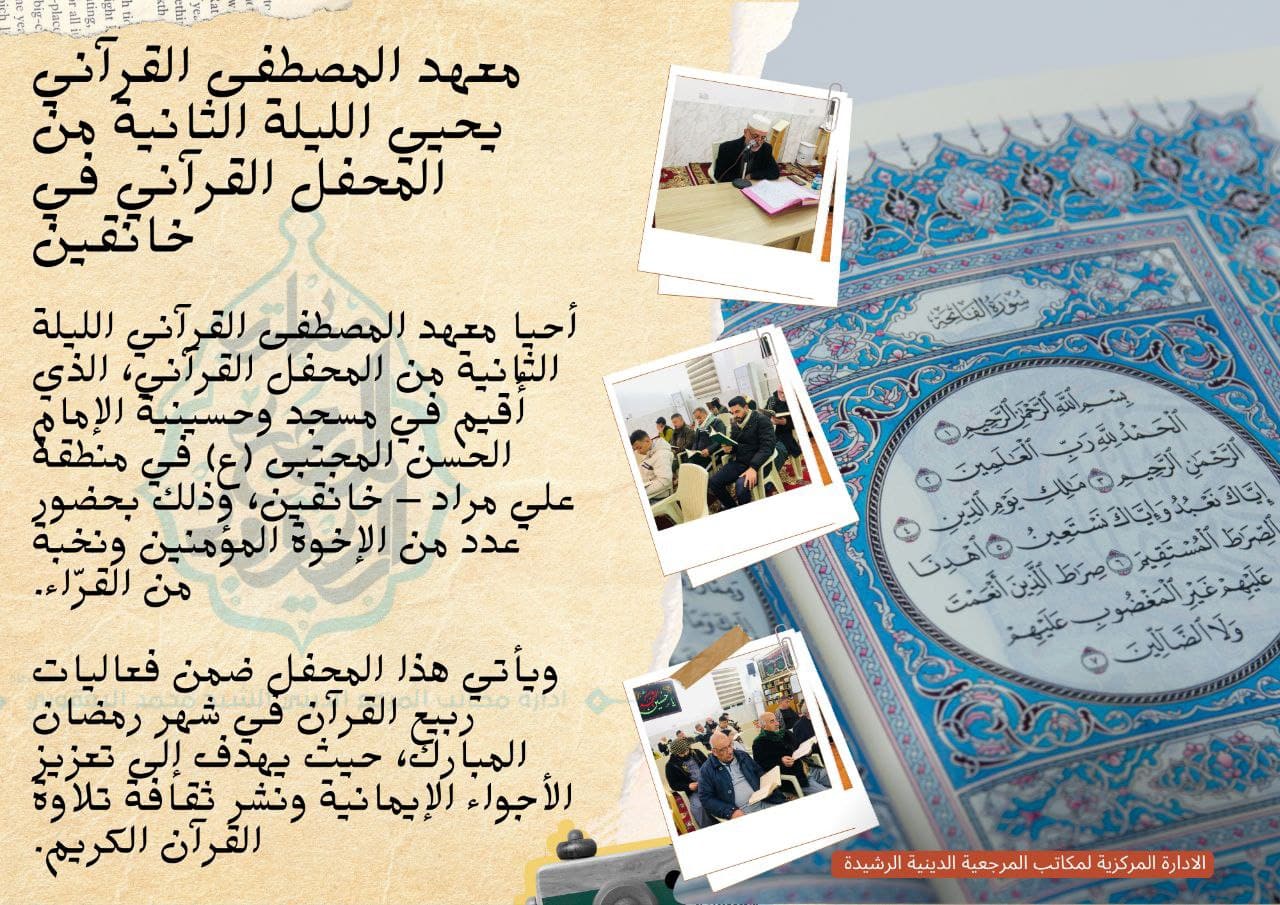 معهد المصطفى القرآني
يحيي الليلة الثانية من
المحفل القرآني في
خانقين
أحيا معهد المصطفى القرآني الليلة
الثانية من المحفل القرآني، الذي
أُقيم في مسجد وحسينية الإمام
الحسن المجتبى (ع) في منطقة
علي مراد – خانقين، وذلك بحضور
عدد من الإخوة المؤمنين ونخبة
من القرّاء.
ويأتي هذا المحفل ضمن فعاليات
ربيع القرآن في شهر رمضان
المبارك، حيث يهدف إلى تعزيز
الأجواء الإيمانية ونشر ثقافة تلاوة
القرآن الكريم.
سُورَةُ الفَاتِحَة
بِسْمِ ٱللَّهِ ٱلرَّحْمَٰنِ ٱلرَّحِيمِ ١
ٱلْحَمْدُ لِلَّهِ رَبِّ ٱلْعَٰلَمِينَ ٢
ٱلرَّحْمَٰنِ ٱلرَّحِيمِ ٣ مَٰلِكِ يَوْمِ ٱلدِّينِ ٤
إِيَّاكَ نَعْبُدُ وَإِيَّاكَ نَسْتَعِينُ ٥ ٱهْدِنَا
ٱلصِّرَٰطَ ٱلْمُسْتَقِيمَ ٦ صِرَٰطَ ٱلَّذِينَ أَنْعَمْتَ
عَلَيْهِمْ غَيْرِ ٱلْمَغْضُوبِ عَلَيْهِمْ
وَلَا ٱلضَّآلِّينَ ٧
الادارة المركزية لمكاتب المرجعية الدينية الرشيدة